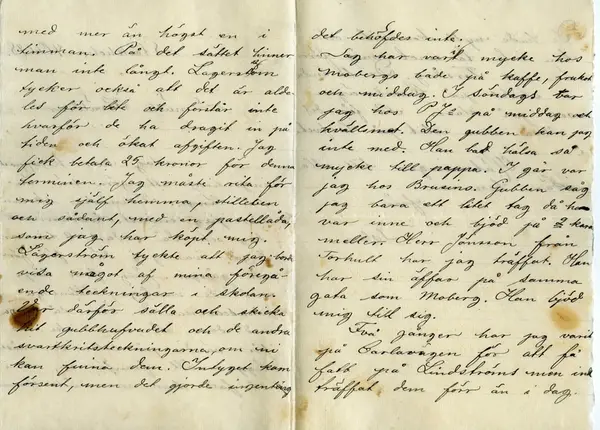 med mer än högst en i
timman. På det sättet hinner
man inte långt. Lagerström
tycker också att det är alde-
les för lite och förstår inte
hvarför de ha dragit in på
tiden och ökat afgiften. Jag
fick betala 25 kronor för denna
terminen. Jag måste rita för
mig själf hemma, stilleben
och sådant, med en pastellåda,
som jag har köpt mig.
Lagerström tyckte att jag borde
visa något af mina föregå-
ende teckningar i skolan.
därför sälla och skicka
hit gubbhufvudet och de andra
svartkritsteckningarna, om ni
kan finna dem. Intyget kom
försent, men det gjorde ingenting
det behöfdes inte.
Jag har varit mycke hos
Mobergs både på kaffe, frukost
och middag. I söndags var
jag hos P.J:s på middag och
kvällsmat. Den gubben kan jag
inte med. Han bad hälsa så
mycke till pappa. I går var
jag hos Brusins. Gubben såg
jag bara ett litet tag då han
var inne och bjöd på 2 kara-
meller. Herr Jönsson från
Torhult har jag träffat. Han
har sin affär på samma
gata som Moberg. Han bjöd
mig till sig.
Två gånger har jag varit
på Carlavägen för att få
fatt på Lindströms men inte
träffat dem förr än i dag.